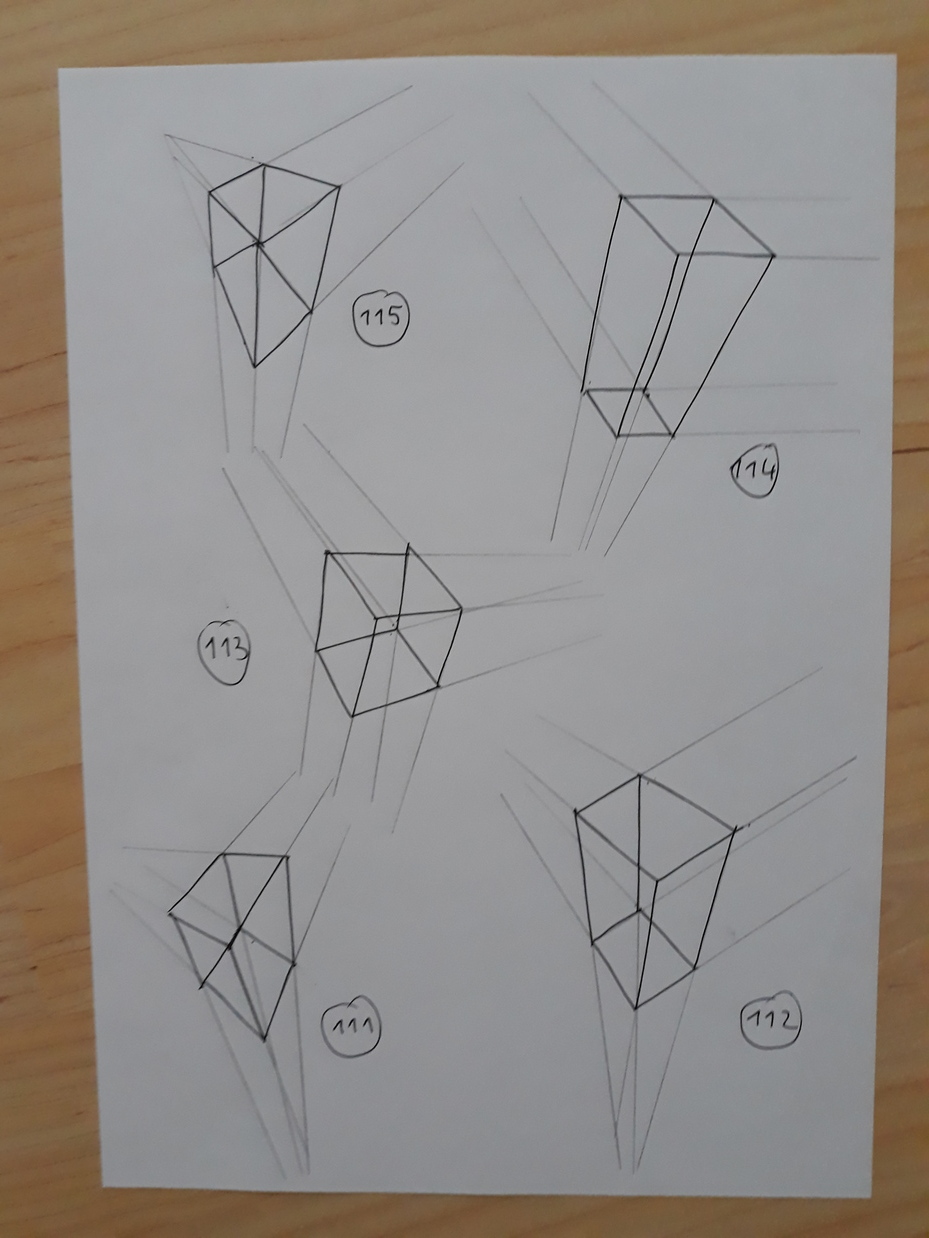 115
114
113
111
112